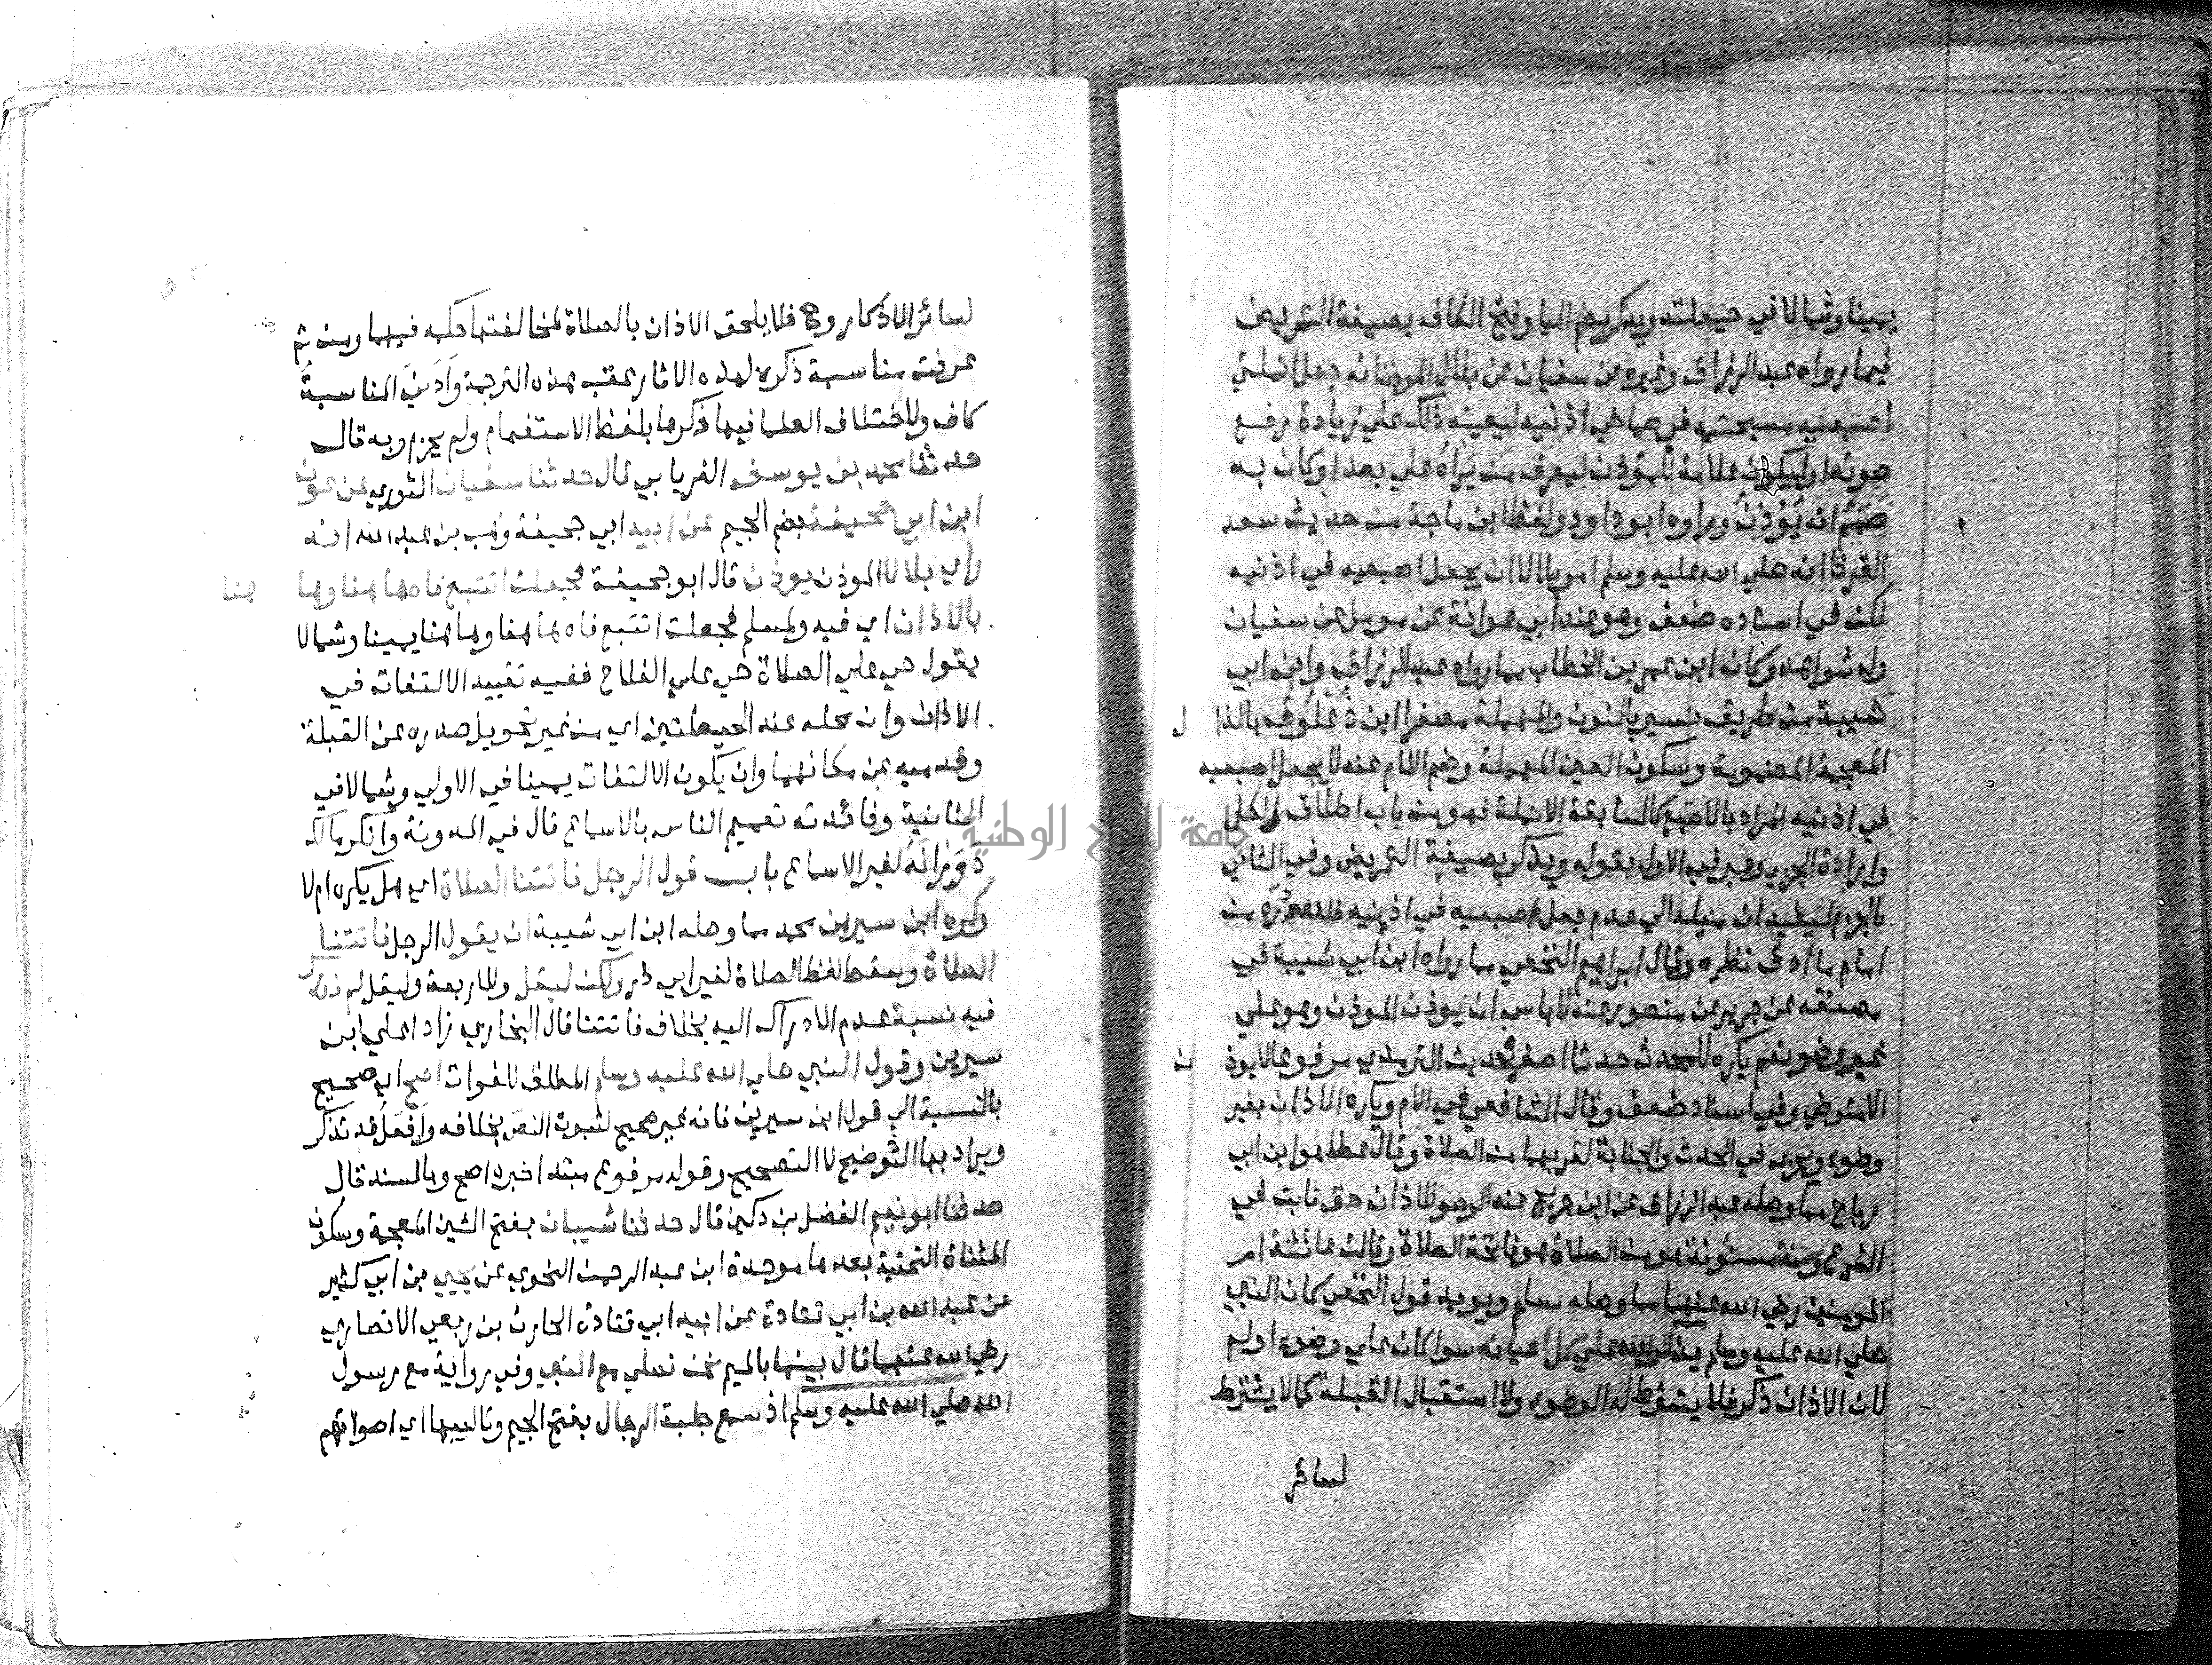 يمينا وشمالا في حيعلتيه ويذكر بضم اليا وفتح الكاف بصيغة التمريض
فيما رواه عبد الرزاق وغيره عن سفيان عن بلال المؤذن انه جعل انملتي
اصبعيه مسبحتيه في صماخي اذنيه ليعينه ذلك علي زيادة رفع
صوته او ليكون علامة للمؤذن ليعرف من يراه علي بعد او كان به
صمم انه يؤذن ورواه ابو داود ولفظ ابن ماجة من حديث سعد
القرظ انه صلي الله عليه وسلم امر بلالا ان يجعل اصبعيه في اذنيه
لكن في اسناده ضعف وهو عند ابي عوانة عن مومل عن سفيان
وله شواهد وكان ابن عمر بن الخطاب مما رواه عبد الرزاق وابن ابي
شيبة من طريق نسير بالنون والمهملة مصغرا ابن ذعلوق بالذال
المعجمة المضمومة وسكون العين المهملة وضم اللام عنه لا يجعل اصبعيه
في اذنيه المراد بالاصبع كالسابقة الانملة فهو من باب اطلاق الكل
وارادة الجزء وعبر في الاول بقوله ويذكر بصيغة التمريض وفي الثاني
بالجزم ليفيد ان ميله الي عدم جعل اصبعيه في اذنيه فلله دره من
امام ما ادق نظره وقال ابراهيم النخعي مما رواه ابن ابي شيبة في
مصنفه عن جرير عن منصور عنه لا باس ان يوذن الموذن وهو علي
غير وضو نعم يكره للمحدث حدثا اصغر لحديث الترمذي مرفوعا لا يوذن
الا متوضي وفي اسناد ضعف وقال الشافعي في الام ويكره الاذان بغير
وضوء ويجزء في الحدث والجنابة لقربهما من الصلاة وقال عطا هو ابن ابي
رباح مما وصله عبد الرزاق عن ابن جريج عنه الوضو للاذان حق ثابت في
الشرع وسنة مسنونة هو من الصلاة هو فاتحة الصلاة وقالت عائشة ام
المومنين رضي الله عنها مما وصله مسلم ويويد قول النخعي كان النبي
صلي الله عليه وسلم يذكر الله علي كل احيانه سوا كان علي وضوء او لم
لان الاذان ذكر فلا يشترط له الوضوء ولا استقبال القبلة كما لا يشترط
لسائر
لسائر الاذكار و ح فلا يلحق الاذان بالصلاة لمخالفتها حكمه فيهما ومن ثم
عرفت مناسبة ذكره لهذه الاثار عقب هذه الترجمة وادني المناسبة
كاف ولاختلاف العلما فيها ذكرها بلفظ الاستفهام ولم يجزم وبه قال
حدثنا محمد بن يوسف الفريابي قال حدثنا سفيان الثوري عن عون
ابن ابي جحيفة بضم الجيم عن ابيه ابي جحيفة وهب بن عبد الله انه
راي بلالا الموذن يوذن قال ابو جحيفة فجعلت اتتبع فاه ههنا وههنا
بالاذان اي فيه ولمسلم فجعلت اتتبع فاه ههنا وههنا يمينا وشمالا
يقول حي علي الصلاة حي علي الفلاح ففيه تقييد الالتفات في
الاذان وان محله عند الحيعلتين اي من غير تحويل صدره عن القبلة
وقدميه عن مكانهما وان يكون الالتفات يمينا في الاولي وشمالا في
الثانية وفائدته تعميم الناس بالاسماع قال في المدونة وانكر مالك
دورانه لغير الاسماع باب قول الرجل فاتتنا الصلاة اي هل يكره ام لا
وكره ابن سيرين محمد مما وصله ابن ابي شيبة ان يقول الرجل فاتتنا
الصلاة وسقط لفظ الصلاة لغير ابي ذر ولكن ليقل وللاربعة وليقل لم ندرك
فيه نسبة عدم الادراك اليه بخلاف فاتتنا قال البخاري زادا علي ابن
سيرين وقول النبي صلي الله عليه وسلم المطلق للفوات اصح اي صحيح
بالنسبة الي قول ابن سيرين فانه غير صحيح لثبوت النص بخلافه وافعل قد تذكر
ويراد بها التوضيح لا التصحيح وقوله مرفوع مبتدا خبره اصح وبالسند قال
حدثنا ابو نعيم الفضل بن دكين قال حدثنا شيبان بفتح الشين المعجمة وسكون
المثناة التحتية بعدها موحدة ابن عبد الرحمن النحوي عن يحيي بن ابي كثير
عن عبد الله بن ابي قتادة عن ابيه ابي قتادة الحارث بن ربعي الانصاري
رضي الله عنهما قال بينما بالميم نحن نصلي مع النبي وفي رواية مع رسول
الله صلي الله عليه وسلم اذ سمع جلبة الرجال بفتح الجيم وتالييها اي اصواتهم
جامعة النجاح الوطنية